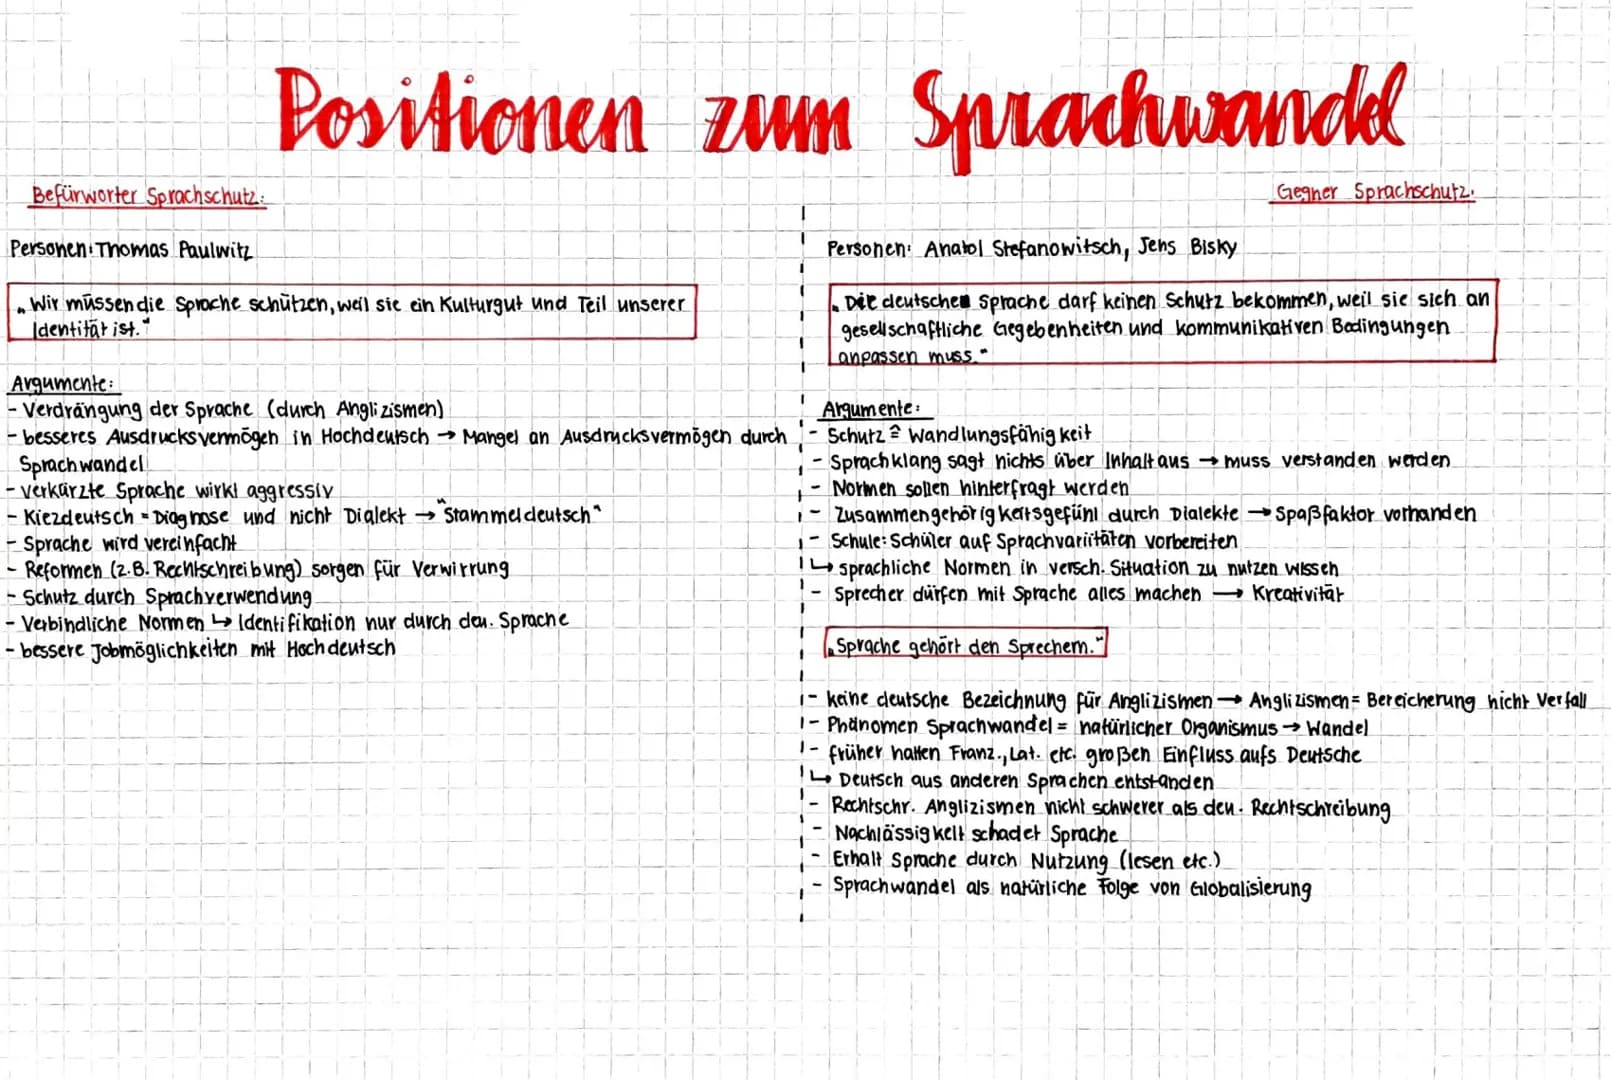 Positionen zum Sprachwandel
Befürworter Sprachschutz:
Personen: Thomas Paulwitz
„Wir müssen die Sprache schützen, weil sie ein Kulturgut und Teil unserer
Identität ist."
Argumente:
- Verdrängung der Sprache (durch Anglizismen)
- besseres Ausdrucksvermögen in Hochdeutsch → Mangel an Ausdrucksvermögen durch
Sprachwandel
- verkürzte Sprache wirkt aggressiv
- Kiezdeutsch = Diagnose und nicht Dialekt → "Stammeldeutsch"
- Sprache wird vereinfacht
- Reformen (z.B. Rechtschreibung) sorgen für Verwirrung
- Schutz durch Sprachverwendung
- Verbindliche Normen ↳ Identifikation nur durch deu. Sprache
- bessere Jobmöglichkeiten mit Hochdeutsch
Gegner Sprachschutz:
Personen: Anatol Stefanowitsch, Jens Bisky
„Die deutsche Sprache darf keinen Schutz bekommen, weil sie sich an
gesellschaftliche Gegebenheiten und kommunikativen Bedingungen
anpassen muss."
Argumente:
- Schutz ≙ Wandlungsfähigkeit
- Sprachklang sagt nichts über Inhalt aus → muss verstanden werden
- Normen sollen hinterfragt werden
- Zusammengehörigkeitsgefühl durch Dialekte → Spaßfaktor vorhanden
- Schule: Schüler auf Sprachvariitäten vorbereiten
↳ sprachliche Normen in versch. Situation zu nutzen wissen
- Sprecher dürfen mit Sprache alles machen → Kreativität
„Sprache gehört den Sprechern."
- keine deutsche Bezeichnung für Anglizismen → Anglizismen = Bereicherung nicht Verfall
- Phänomen Sprachwandel = natürlicher Organismus → Wandel
- früher hatten Franz., Lat. etc. großen Einfluss aufs Deutsche
↳ Deutsch aus anderen Sprachen entstanden
- Rechtschr. Anglizismen nicht schwerer als deu. Rechtschreibung
- Nachlässigkeit schadet Sprache
- Erhalt Sprache durch Nutzung (lesen etc.)
- Sprachwandel als natürliche Folge von Globalisierung